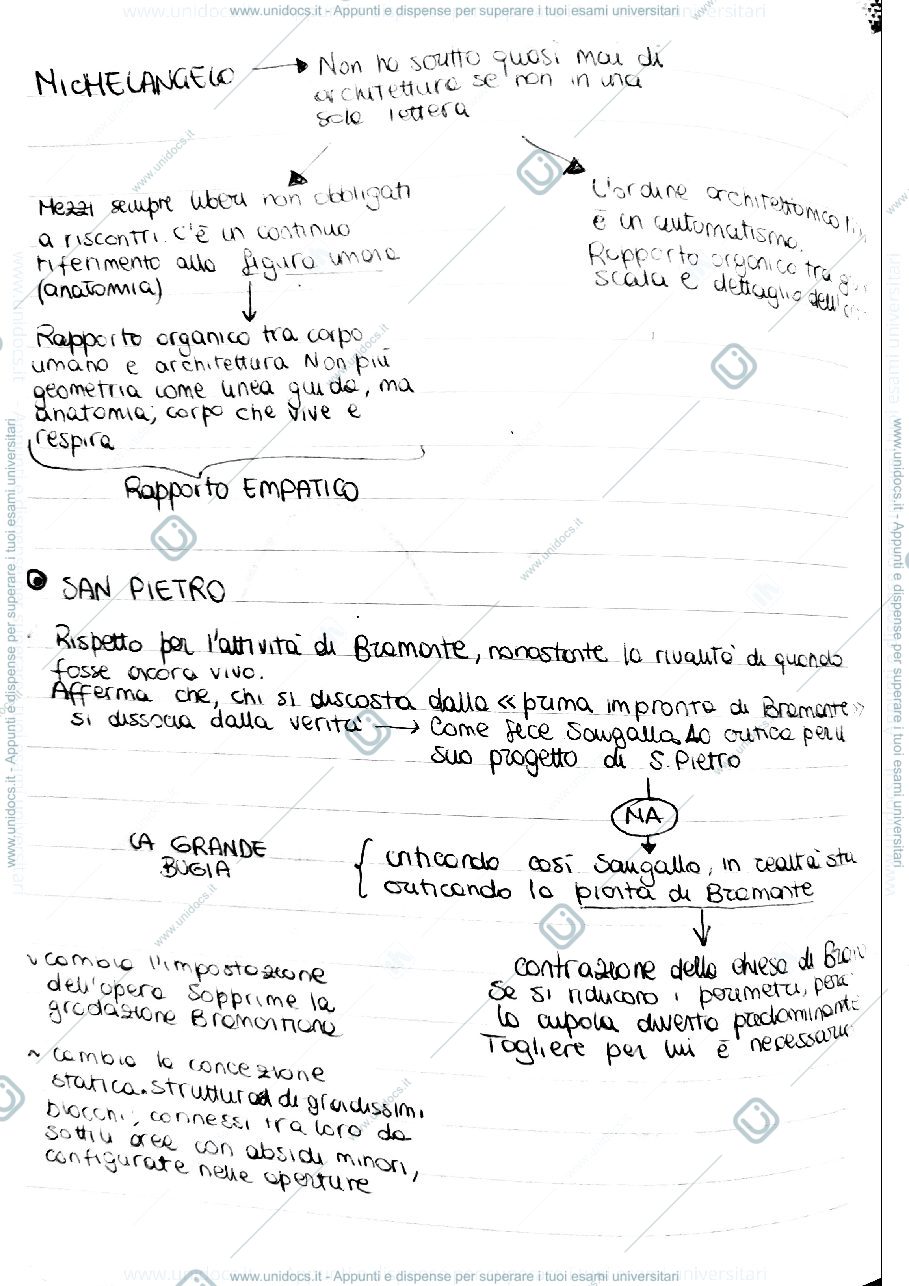 www.unidocs.it - Appunti e dispense per superare i tuoi esami universitari
MICHELANGELO → Non ha scritto quasi mai di
architettura se non in una
sola lettera
Mezzi sempre liberi non obbligati
a riscontri. C'è un continuo
riferimento alla figura umana
(anatomia)
Rapporto organico tra corpo
umano e architettura Non più
geometria come linea guida, ma
anatomia; corpo che vive e
respira
Rapporto EMPATICO
L'ordine architettonico
è un automatismo.
Rapporto organico tra
scala e dettaglio dell'
SAN PIETRO
Rispetto per l'attività di Bramante, nonostante la rivalità di quando
fosse ancora vivo.
Afferma che, chi si discosta dalla «prima impronta di Bramante»
si dissocia dalla verità → Come fece Sangallo. Lo critica per il
suo progetto di S. Pietro
MA
LA GRANDE
BUGIA
criticando così Sangallo, in realtà sta
criticando la pianta di Bramante
contrazione della chiesa di
Se si riducono i perimetri, però
la cupola diventa predominante
Togliere per lui è necessario
cambia l'impostazione
dell'opera Sopprime la
gradazione Bramantiana
~ cambia la concezione
statica. Struttura di grandissimi
blocchi, connessi tra loro da
sottili aree con absidi minori,
configurate nelle aperture
www.unidocs.it - Appunti e dispense per superare i tuoi esami universitari